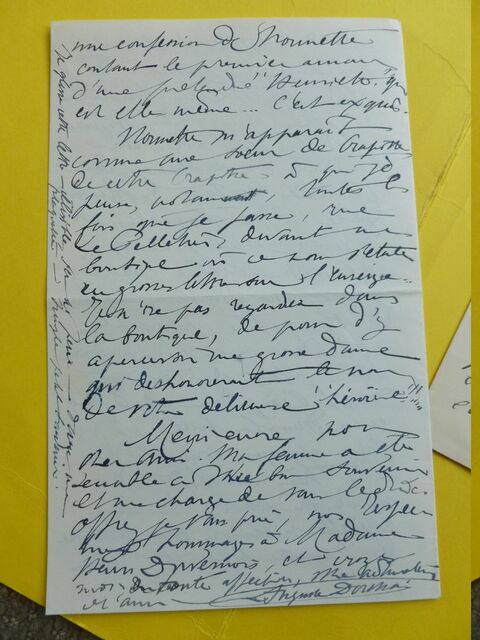 une confession de Nounette
contant le premier amour
d'une prétendue Henriette qui
est elle même... C'est exquis.
Nounette m'apparaît
comme une soeur de Crapotte
de cette Crapotte à qui je
pense, notamment, toutes les
fois que je passe, rue
Le Pelletier, devant une
boutique où ce nom s'étale
en grosses lettres sur l'enseigne..
Je n'ose pas regarder dans
la boutique, de peur d'y
apercevoir une grosse dame
qui deshonorerait le nom
de votre délicieuse héroïne!
Merci encore, mon
cher ami. Ma femme a été
sensible à votre bon souvenir
et me charge de vous le dire
offrez, je vous prie, nos respec
tueux hommages à Madame
Henri Duvernois, et croyez
moi en toute affection, votre
et ami
Auguste
Je glisse cette lettre